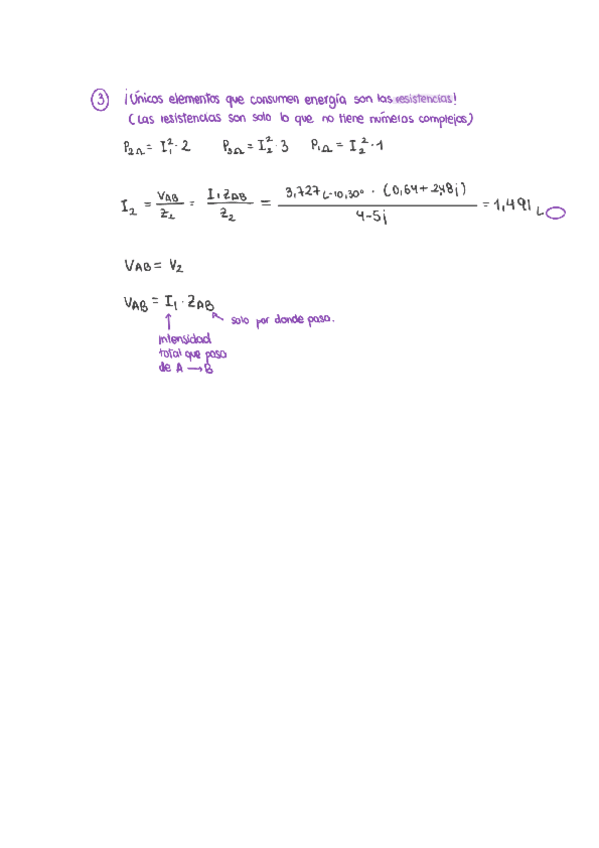 ③ ¡Únicos elementos que consumen energía son las resistencias!
(Las resistencias son solo lo que no tiene números complejos)
P2Ω = I₁² · 2 P3Ω = I₂² · 3 P1Ω = I₂² · 1
I₂ = VAB / Z₂ = I₁ ZAB / Z₂ = 3,727∠-10,30° · (0,64 + 2,48j) / 4-5j = 1,491∠
VAB = V₂
VAB = I₁ · ZAB
solo por donde pasa.
intensidad
total que pasa
de A → B